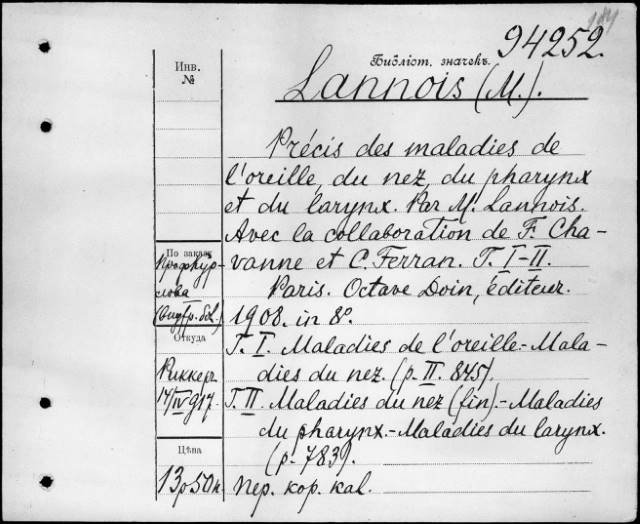 94252.
Библіот. значекъ.
Инв.
№
Lannois (M.).
Précis des maladies de
l'oreille, du nez, du pharynx
et du larynx. Par M. Lannois.
Avec la collaboration de F. Cha-
vanne et C. Ferran. T. I-II.
Paris. Octave Doin, éditeur.
1908. in 8º.
T. I. Maladies de l'oreille.-Mala-
dies du nez. (p. II. 845).
T. II. Maladies du nez (fin).-Maladies
du pharynx.-Maladies du larynx.
(p. 783).
пер. кор. кал.
По заказу
Откуда
Риккеръ
17/IV 917.
Цѣна
13р50к